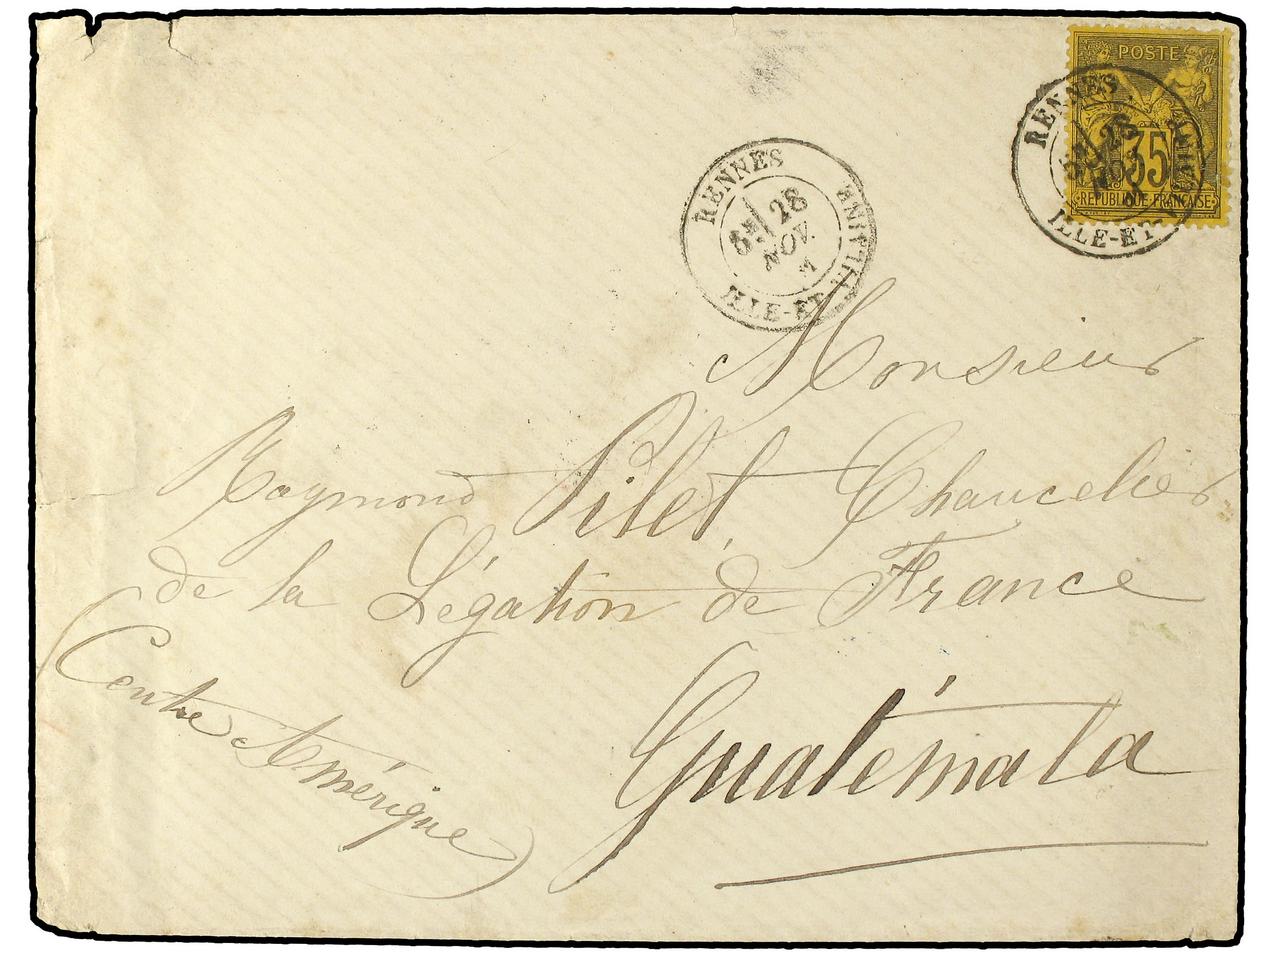 POSTE
35
REPUBLIQUE FRANÇAISE
RENNES
28
ILLE-ET-VILAINE
RENNES
6E 28
NOV.
ILLE-ET-VILAINE
Monsieur
Raymond Pilet, Chancelier
de la Légation de France
Guatémala
(Centre Amérique)